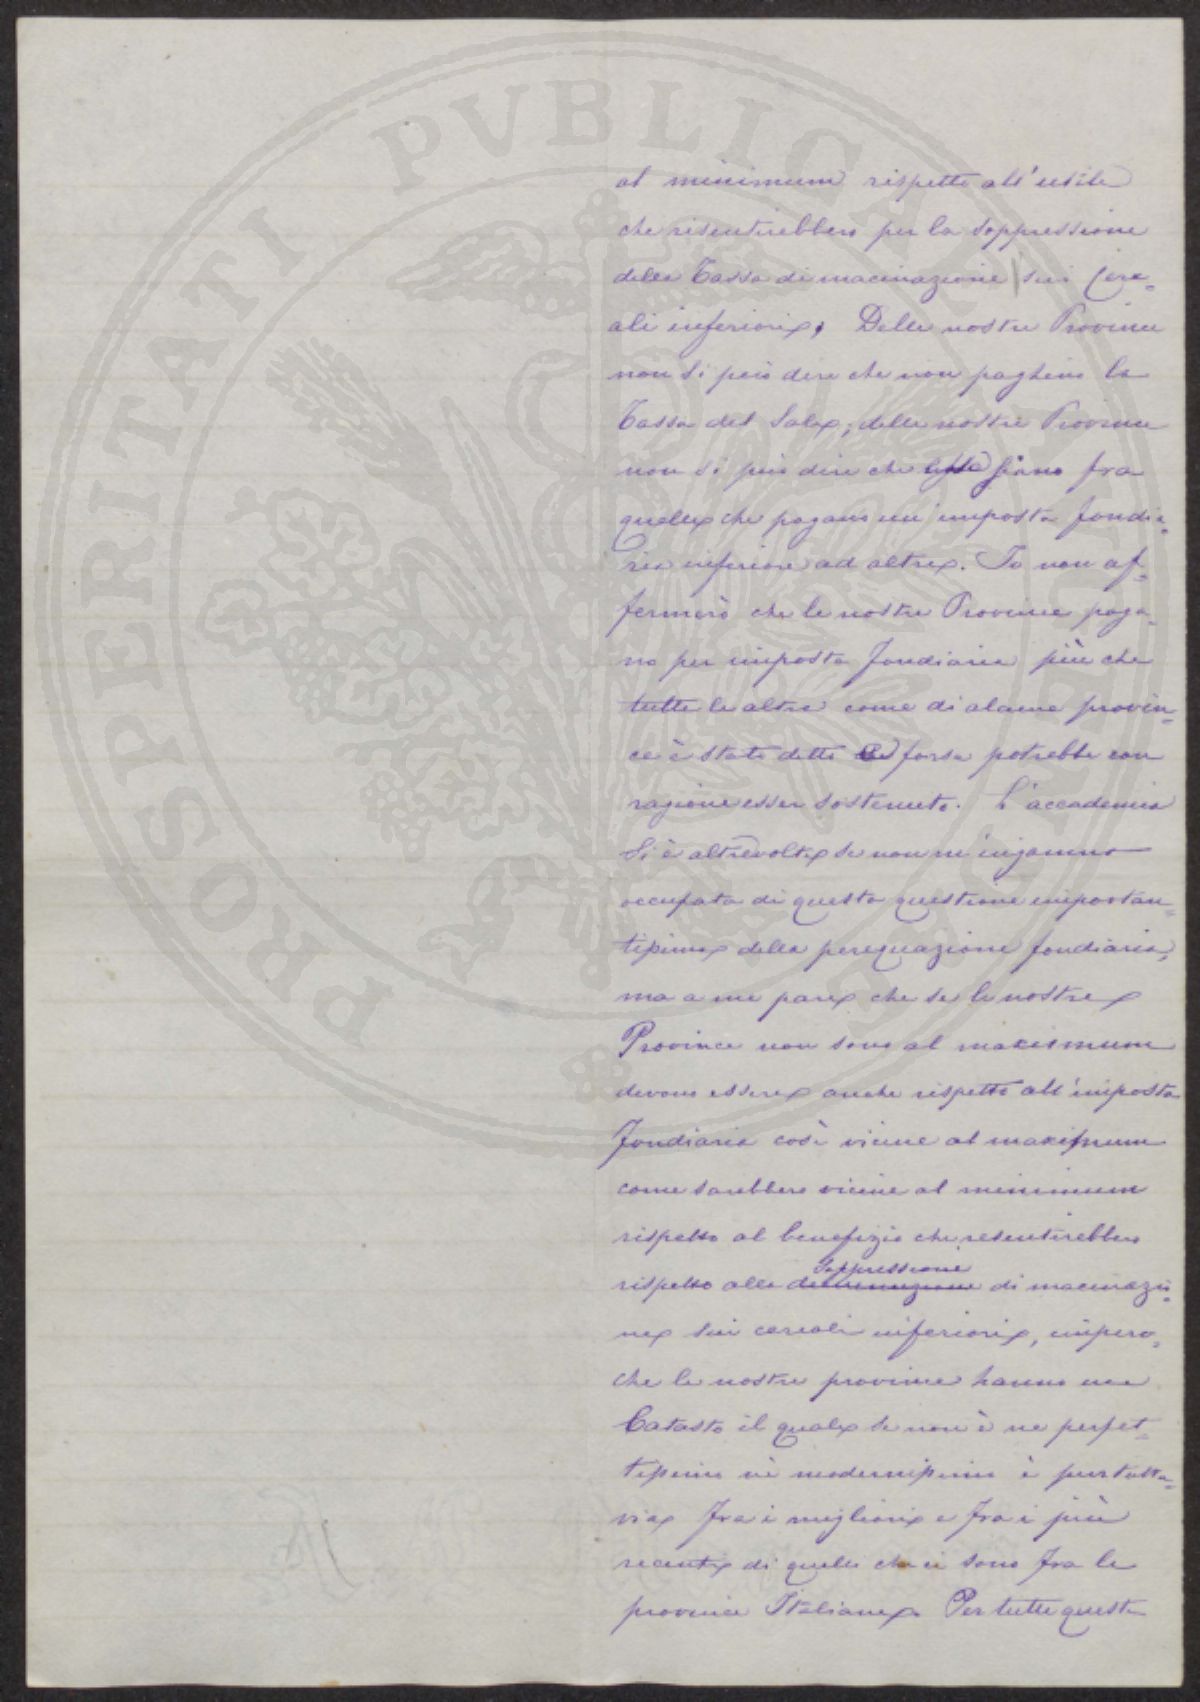 PROSPERITATI PUBLICAE
al minimum rispetto all'utile
che risentirebbero per la soppressione
della Tassa di macinazione sui Cere-
ali inferiori, Delle nostre Provincie
non si può dire che non paghino la
Tassa del Sale; delle nostre Provincie
non si può dire che siano fra
quelle che pagano un'imposta fondia-
ria inferiore ad altre. Io non af-
fermerò che le nostre Provincie paga-
no per imposta fondiaria più che
tutte le altre come di alcune provin-
ce è stato detto e forse potrebbe con
ragione esser sostenuto. L'accademia
si è altrevolte se non m'inganno
occupata di questa questione importan-
tissima della perequazione fondiaria,
ma a me pare che se le nostre
Province non sono al maximum
devono essere anche rispetto all'imposta
fondiaria così vicine al maximum
come sarebbero vicine al minimum
rispetto al benefizio che risentirebbero
soppressione
rispetto alla di macinazio-
ne sui cereali inferiori, impero-
che le nostre provincie hanno un
Catasto il quale se non è ne perfet-
tissimo nè modernissimo è purtutta-
via fra i migliori e fra i più
recenti di quelli che ci sono fra le
provincie Italiane. Per tutte queste